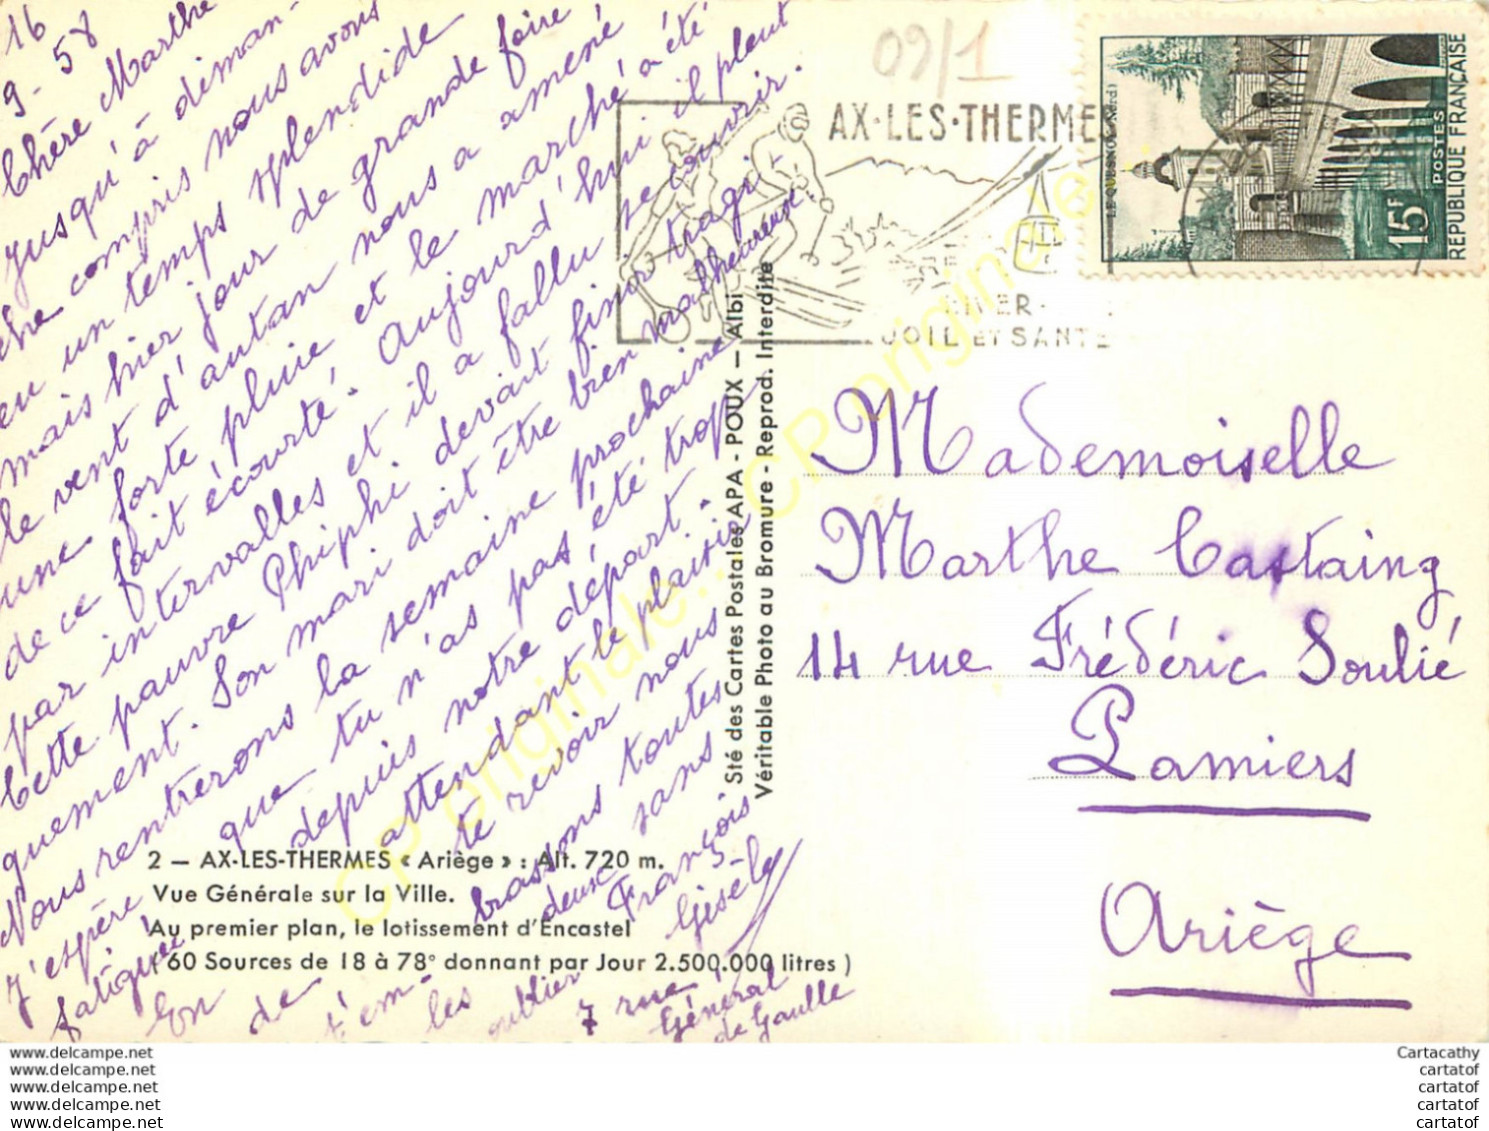 16
9-58
Chère Marthe
Jusqu'à diman-
che compris nous avons
eu un temps splendide
mais hier jour de grande foire
le vent d'autan nous a amené
une forte pluie et le marché a été
de ce fait écourté. Aujourd'hui il pleut
par intervalles et il a fallu se couvrir.
Cette pauvre Phiphi devait finir tragi-
quement. Son mari doit être bien malheureux.
Nous rentrerons la semaine prochaine
J'espère que tu n'as pas été trop
fatiguée depuis notre départ.
En attendant le plaisir
de te revoir nous
t'em- brassons toutes
les deux sans
oublier François
Gisèle
7 rue
Général
de Gaulle
2 — AX-LES-THERMES « Ariège » : Alt. 720 m.
Vue Générale sur la Ville.
Au premier plan, le lotissement d'Encastel
( 60 Sources de 18 à 78° donnant par Jour 2.500.000 litres )
Sté des Cartes Postales APA - POUX — Albi
Véritable Photo au Bromure - Reprod. Interdite
09/1
AX-LES-THERMES
HIVER-
JOIE ET SANTE
LE QUESNOY (Nord)
15F
POSTES
REPUBLIQUE FRANÇAISE
Mademoiselle
Marthe Castaing
14 rue Frédéric Soulié
Pamiers
Ariège
CP originale.
CP originale.
CP originale
www.delcampe.net
www.delcampe.net
www.delcampe.net
www.delcampe.net
www.delcampe.net
Cartacathy
cartatof
cartatof
cartatof
cartatof